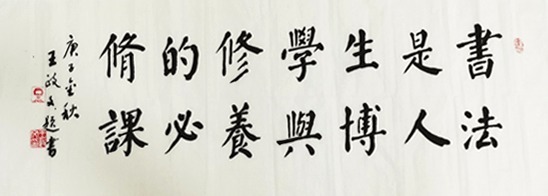 書法
是人
生博
學與
修養
的必
脩課
庚子金秋
王政文題書